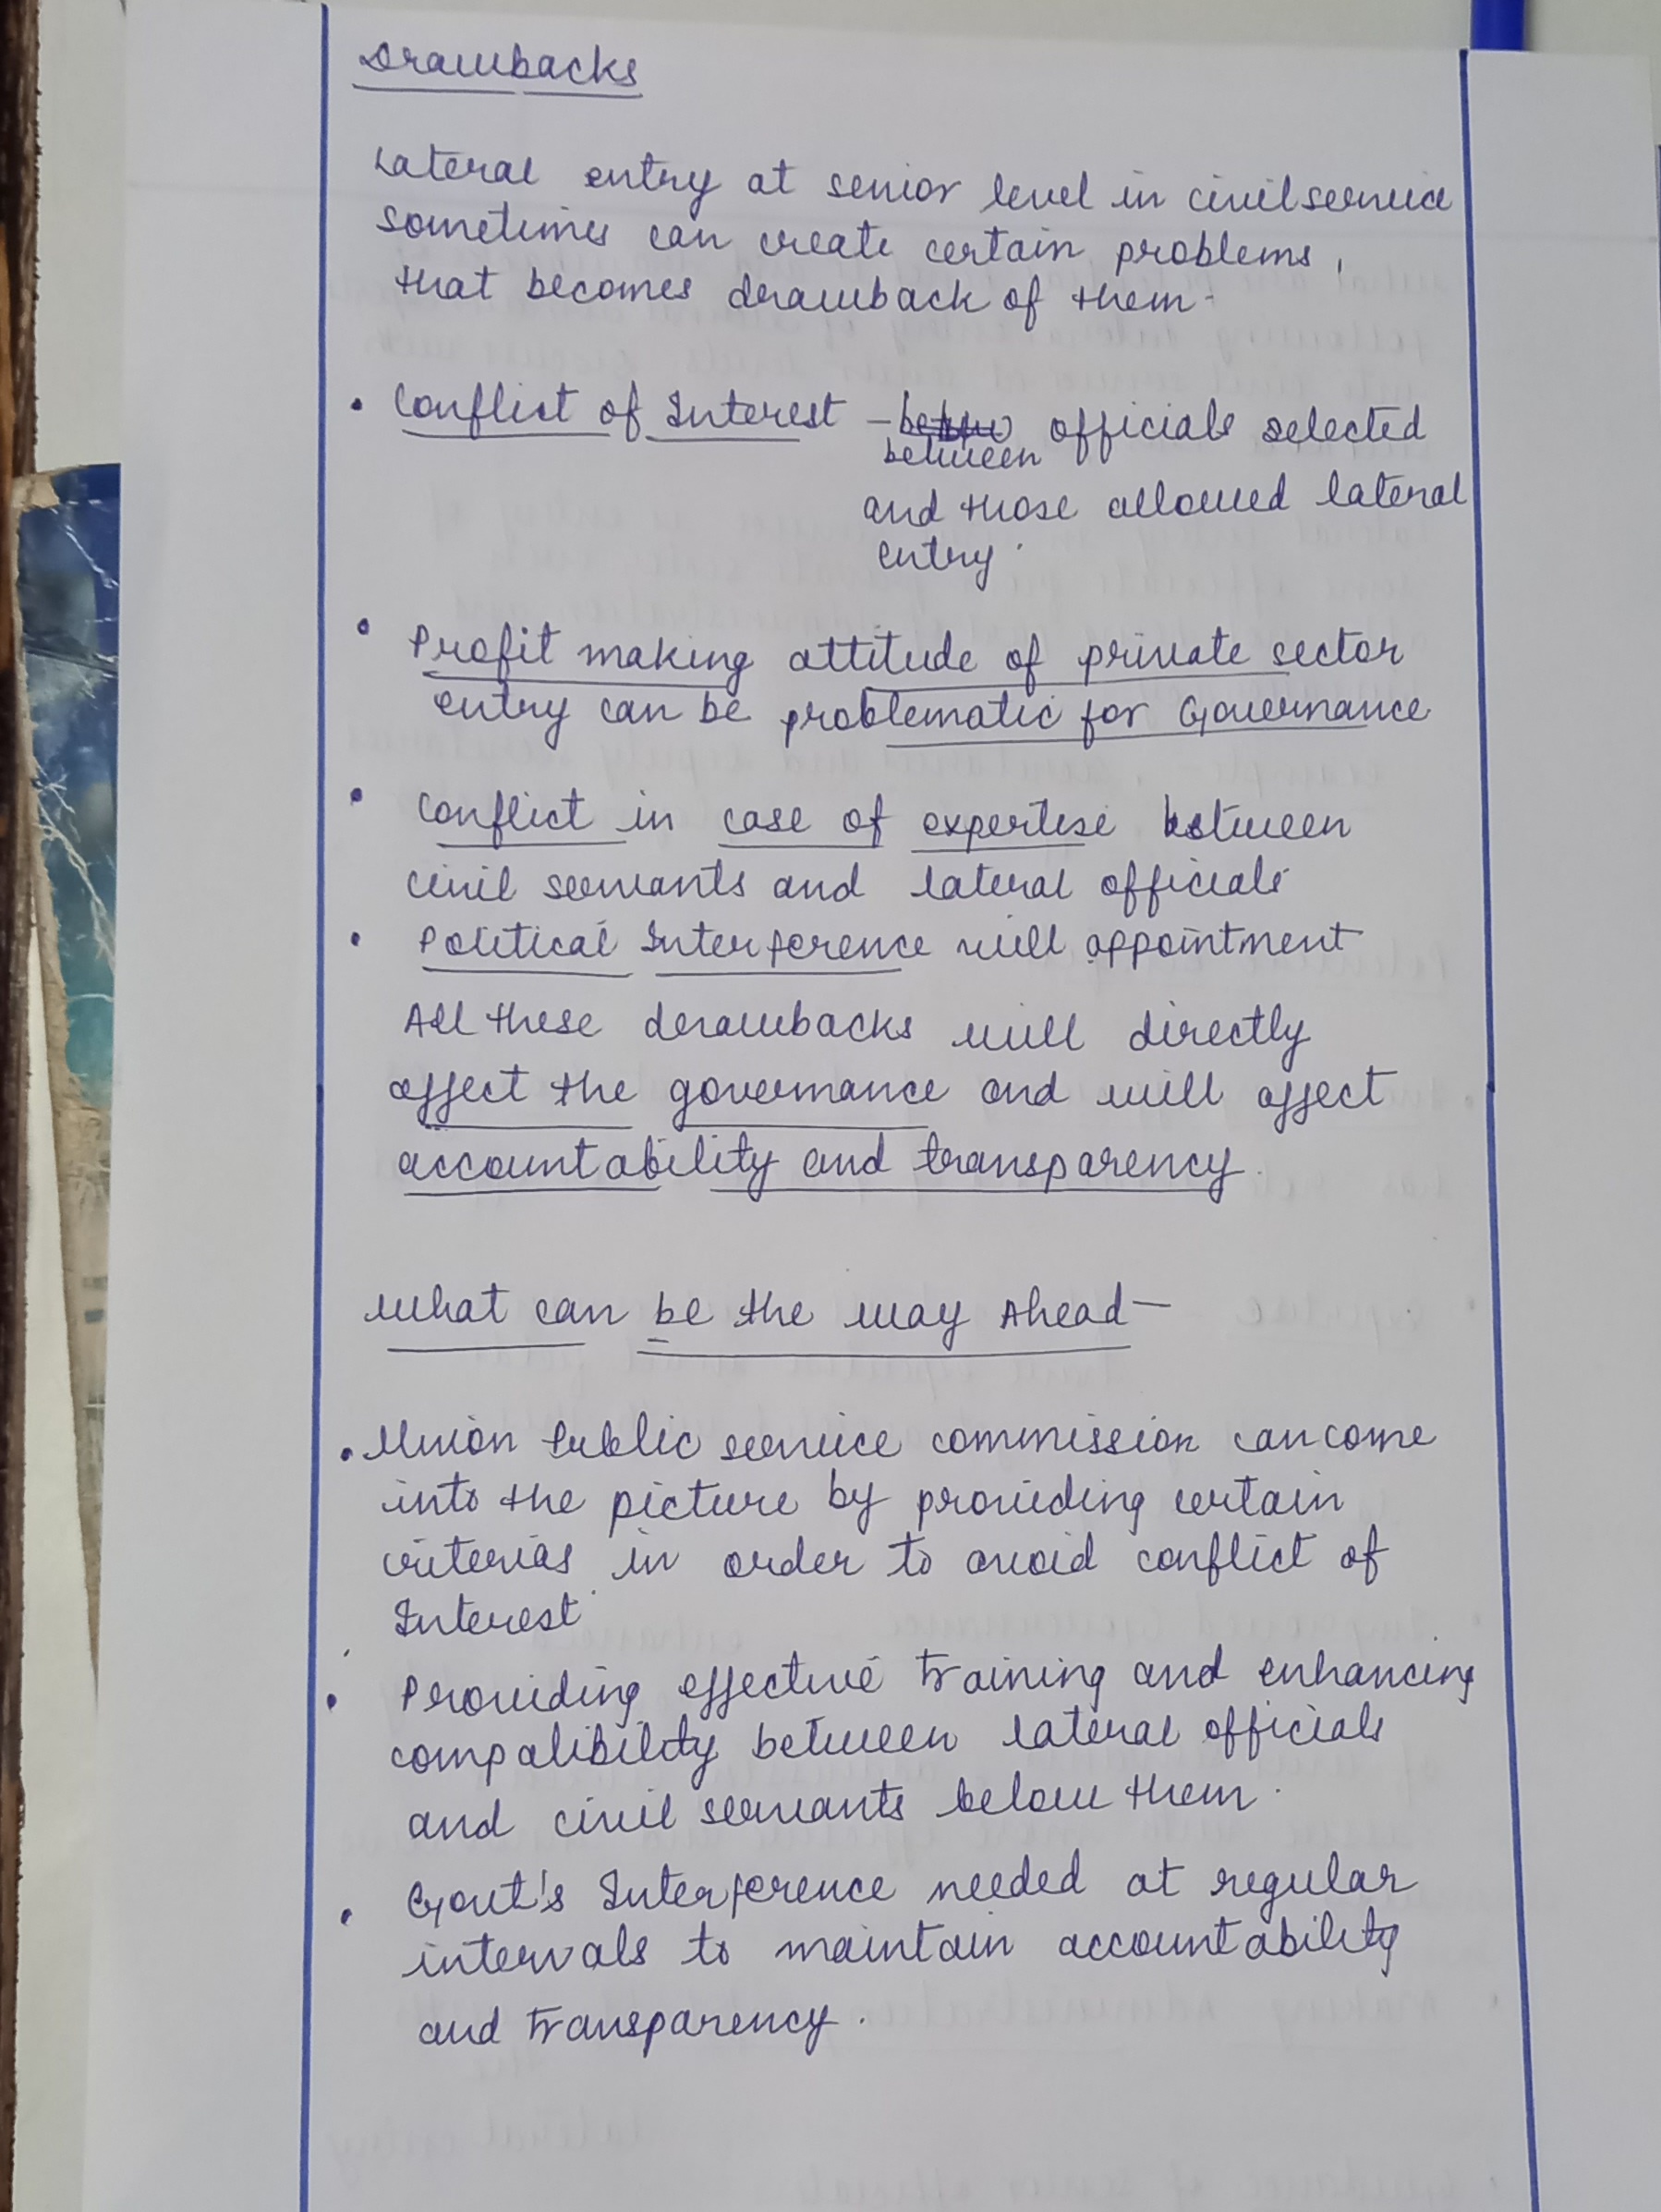 Drawbacks
Lateral entry at senior level in civil service
sometimes can create certain problems,
that becomes drawback of them-
• Conflict of Interest - officials selected
between
and those allowed lateral
entry.
• Profit making attitude of private sector
entry can be problematic for Governance
• Conflict in case of expertise between
civil servants and lateral officials
• Political Interference will appointment
All these drawbacks will directly
affect the governance and will affect
accountability and transparency.
What can be the way Ahead—
• Union Public service commission can come
into the picture by providing certain
criterias in order to avoid conflict of
Interest.
• Providing effective training and enhancing
compalibility between lateral officials
and civil servants below them.
• Govt's Interference needed at regular
intervals to maintain accountability
and transparency.